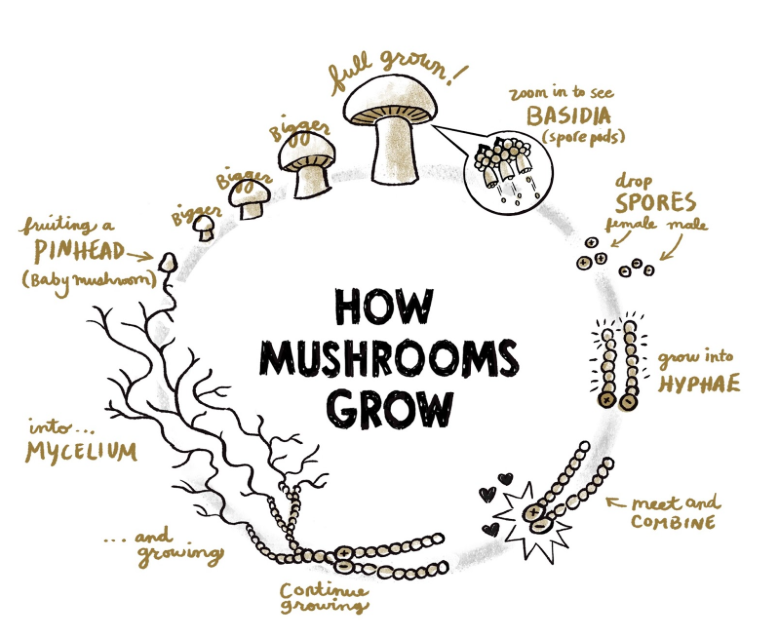 full grown!
zoom in to see
BASIDIA
(spore pods)
drop
SPORES
female male
grow into
HYPHAE
meet and
COMBINE
Continue
growing
... and
growing
into...
MYCELIUM
fruiting a
PINHEAD
(Baby mushroom)
Bigger
Bigger
Bigger
HOW
MUSHROOMS
GROW